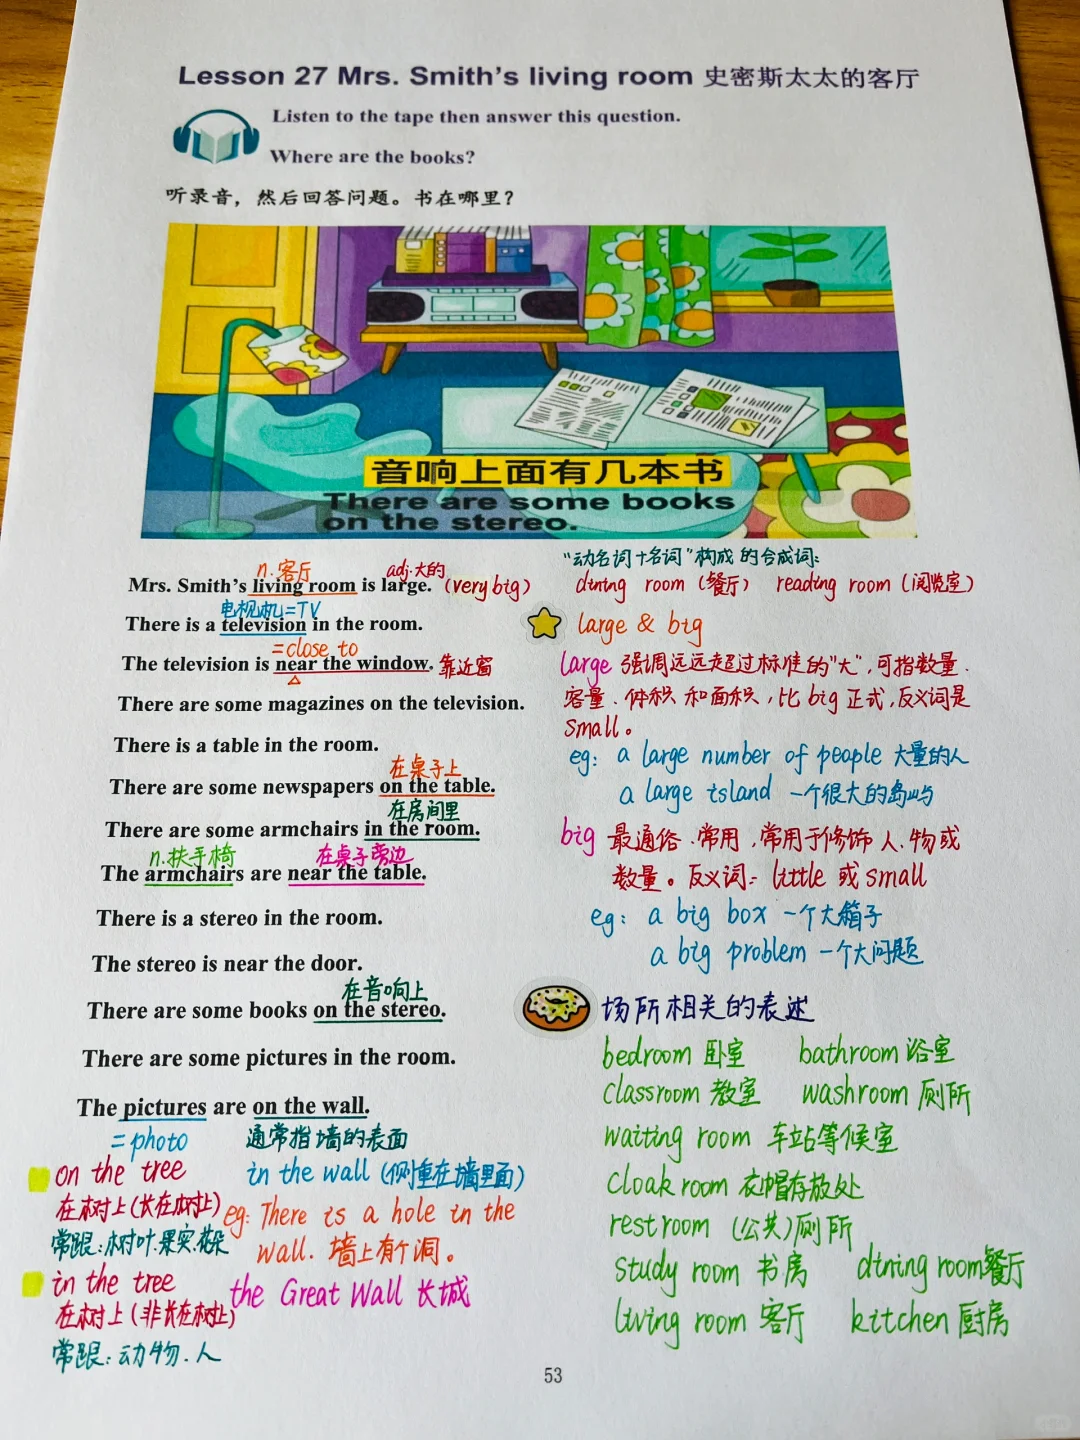 Lesson 27 Mrs. Smith's living room 史密斯太太的客厅
Listen to the tape then answer this question.
Where are the books?
听录音，然后回答问题。书在哪里？
音响上面有几本书
There are some books
on the stereo.
n.客厅
adj.大的
Mrs. Smith's living room is large. (very big)
电视机=TV
There is a television in the room.
=close to
The television is near the window. 靠近窗
There are some magazines on the television.
There is a table in the room.
在桌子上
There are some newspapers on the table.
在房间里
There are some armchairs in the room.
n.扶手椅 在桌子旁边
The armchairs are near the table.
There is a stereo in the room.
The stereo is near the door.
在音响上
There are some books on the stereo.
There are some pictures in the room.
The pictures are on the wall.
=photo 通常指墙的表面
on the tree
在树上(长在树上)
常跟:树叶.果实.花朵
in the tree
在树上(非长在树上)
常跟:动物.人
in the wall (侧重在墙里面)
eg: There is a hole in the
wall. 墙上有个洞。
the Great Wall 长城
"动名词+名词"构成的合成词:
dining room (餐厅) reading room (阅览室)
large & big
large 强调远远超过标准的"大",可指数量.
容量.体积和面积,比big正式,反义词是
small。
eg: a large number of people 大量的人
a large island 一个很大的岛屿
big 最通俗.常用,常用于修饰人.物或
数量。反义词: little 或 small
eg: a big box 一个大箱子
a big problem 一个大问题
场所相关的表述
bedroom 卧室 bathroom 浴室
classroom 教室 washroom 厕所
waiting room 车站等候室
cloakroom 衣帽存放处
restroom (公共)厕所
study room 书房 dining room餐厅
living room 客厅 kitchen 厨房
53